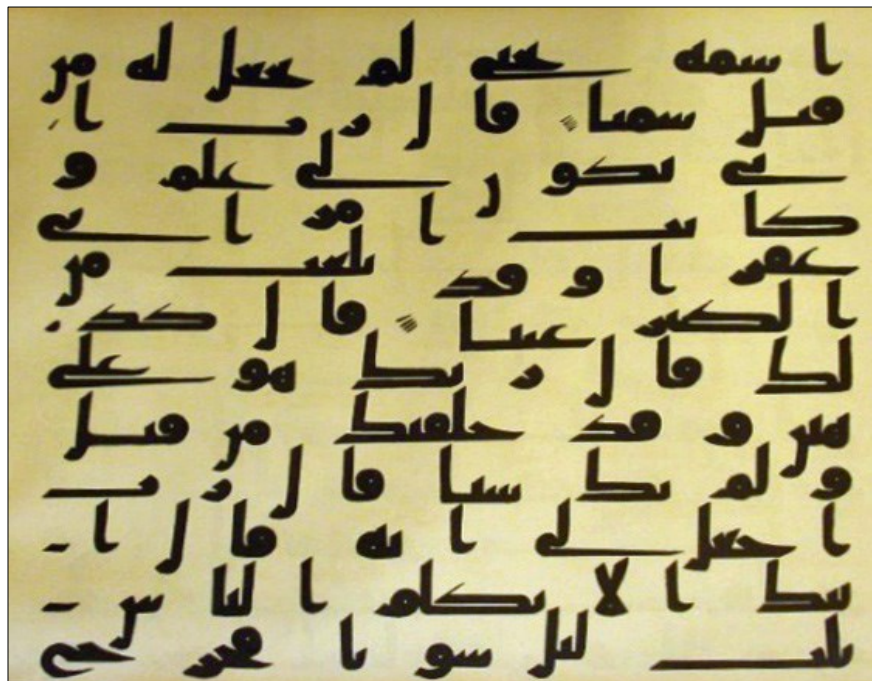 اسمه يحيى لم نجعل له من
قبل سميا قال رب ا
نى يكون لى غلم و
كانت امراتى
عقرا وقد بلغت من
الكبر عتيا قال كذ
لك قال ربك هو على
هين وقد خلقتك من قبل
ولم تك شيا قال رب
اجعل لى ايه قال ا
يتك الا تكلم الناس
ثلث ليل سويا فخرج